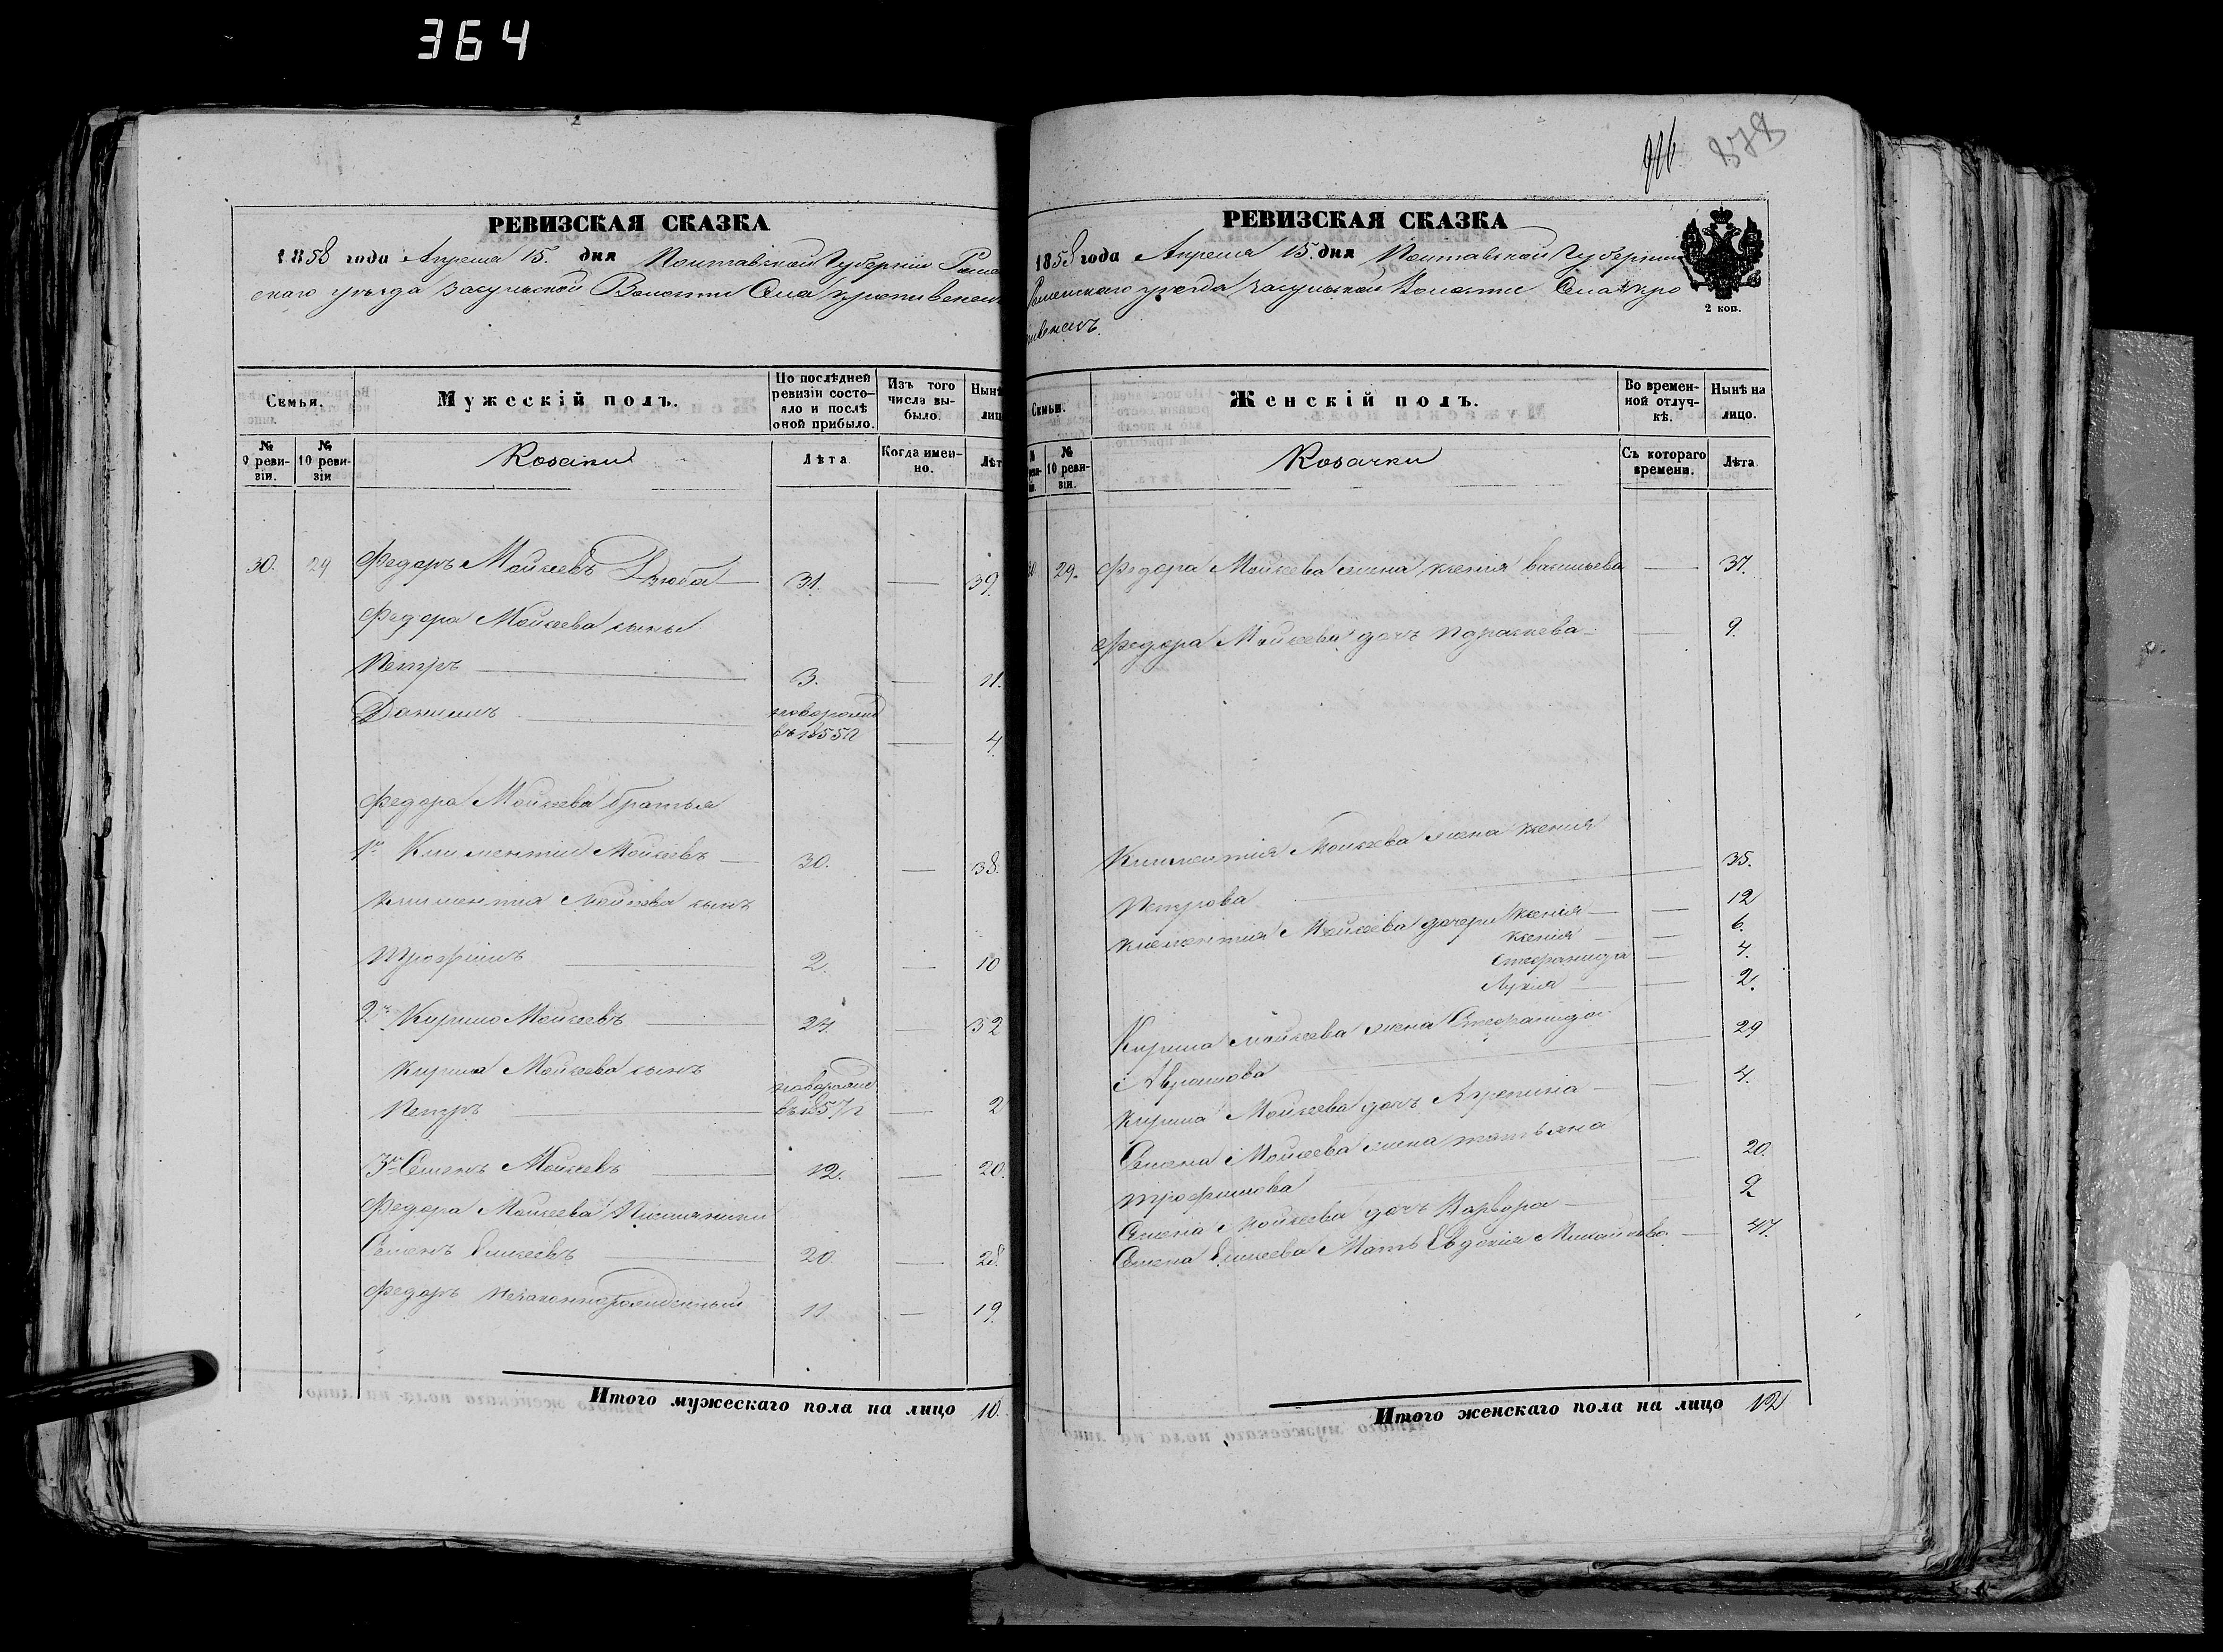 364
РЕВИЗСКАЯ СКАЗКА
1858 года Апреля 15. дня Полтавской Губернии Роме
скаго уезда Засульской Волости Села Кропивенец
Семьи.
Мужескій полъ.
По послѣдней ревизіи состояло и послѣ оной прибыло.
Изъ того числа выбыло.
Нынѣ лиц
№ 9 ревизіи.
№ 10 ревизіи
Козаки
Лѣта
Когда именно.
Лѣт
30. 29 Федоръ Мойсеевъ Дзюба 31. 39.
Федора Мойсеева сыны
Петръ 3. 11.
Даниилъ новорожд
въ 1855 г 4.
Федора Мойсеева братья
1й Климентій Мойсеевъ 30. 38.
Климентія Мойсеева сынъ
Трофимъ 2. 10
2й Кирило Мойсеевъ 24. 32
Кирила Мойсеева сынъ новорожд
Петръ въ 1857 г 2
3й Семенъ Мойсеевъ 12. 20.
Федора Мойсеева Племяники
Семенъ Елисеевъ 20. 28.
Федоръ незаконнорожденный 11 19.
Итого мужескаго пола на лицо 10.
916. 878
РЕВИЗСКАЯ СКАЗКА
1858 года Апреля 15. дня Полтавской Губернии
Роменскаго уезда Засульской Волости Села Кро
пивенецъ.
2 коп.
Семьи.
Женскій полъ.
Во временной отлучкѣ.
Нынѣ на лицо.
№ 10 ревизіи.
Козачки
Съ котораго времени.
Лѣта
29. Федора Мойсеева жена Ксенія Васильева 37.
Федора Мойсеева дочь Параскева 9.
Климентія Мойсеева жена Ксенія
Петрова 35.
Климентія Мойсеева дочери Ксенія 12
Ксенія 6.
Стефанида 4.
Лукія 2.
Кирила Мойсеева жена Стефанида
Аврамова 29
Кирила Мойсеева дочь Агрепина 4.
Семена Мойсеева жена Татьяна
Трофимова 20.
Семена Мойсеева дочь Варвара 2
Семена Елисеева Мать Евдокія Михайлова 47.
Итого женскаго пола на лицо 12